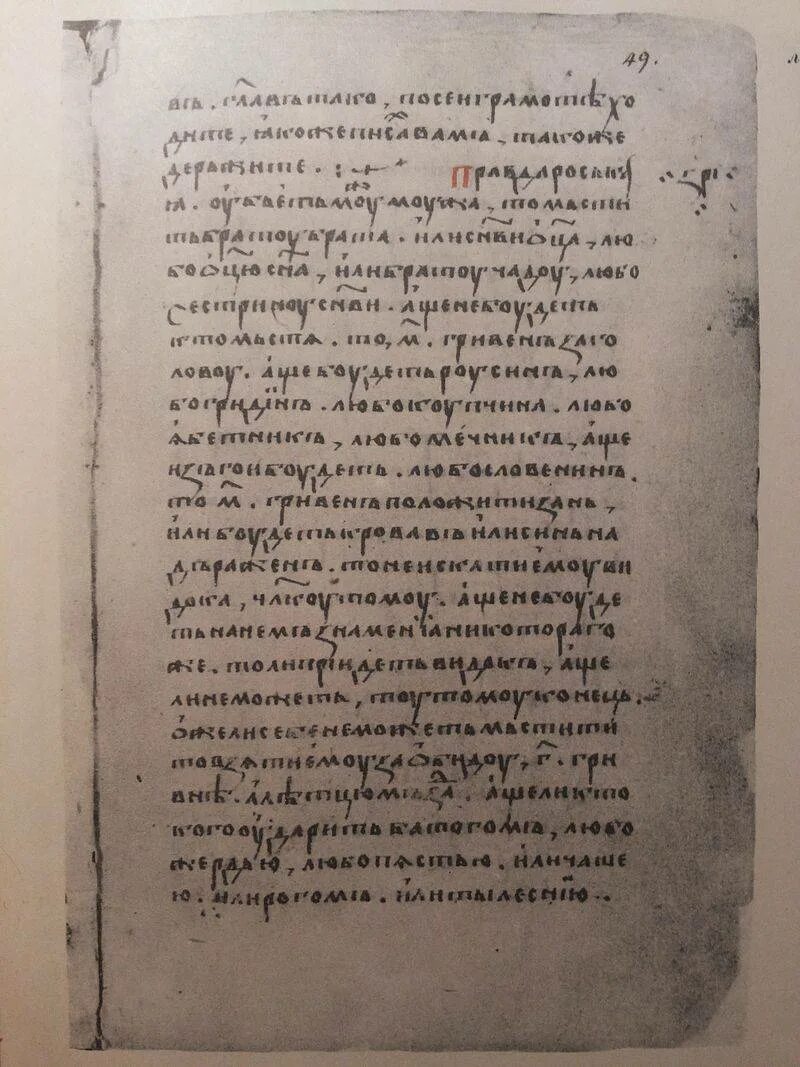 49.
въ. гл҃авъ тако, по сен грамотѣ хо
дите, ꙗкоже писа вамъ, такоже
держите. :-+ Правда роськꙗ
ꙗ. оубьеть моу моужа, то мьсти
ть братоу брата. или сн҃ви оц҃а, лю
бо оц҃ю сн҃а, или братоу чадоу, любо
сестриноу сн҃ви. аще не боудеть
кто мьстѧ. то, м҃. гривенъ за го
ловоу. аще боудеть роусинъ, лю
бо гридинъ. любо коупчина. любо
ѧбетникъ, любо мечникъ, аще
изъгои боудеть. любо словенинъ.
то м҃. гривенъ положити зань,
или боудеть кровавъ или синь на
дъраженъ. то не искати ѥмоу ви
дока, чл҃коу томоу. аще не боуде
ть на немъ знаменїа никотораго
же. то ли приидеть видокъ, аще
ли не можеть, тоу томоу конець.
оже ли себе не можеть мьстити
то взѧти ѥмоу за обидоу, г҃. гри
внѣ. а лѣтцю мъзда. аще ли кто
кого оударить батогомъ, любо
жердью, любо пѧстью. или чаше
ю. или рогомъ. или тылеснию..